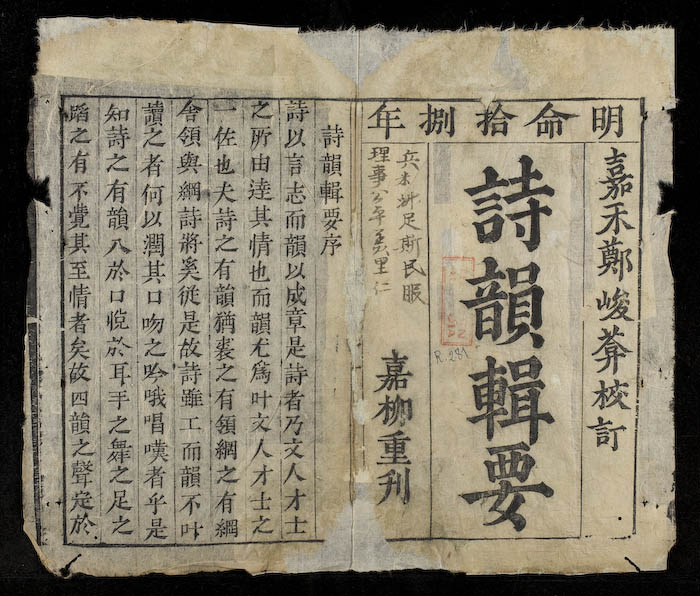 明命拾捌年
嘉禾鄭峻㟽校訂
詩韻輯要
嘉柳重刊
兵未 足斯民眼
理事公平美里仁
R.281
詩韻輯要序
詩以言志而韻以成章是詩者乃文人才士
之所由達其情也而韻尤爲叶文人才士之
一佐也夫詩之有韻猶裘之有領網之有綱
舍領與綱詩將奚從是故詩雖工而韻不叶
讀之者何以潤其口吻之吟哦唱嘆者乎是
知詩之有韻入於口悅於耳手之舞之足之
蹈之有不覺其至情者矣故四韻之聲定於